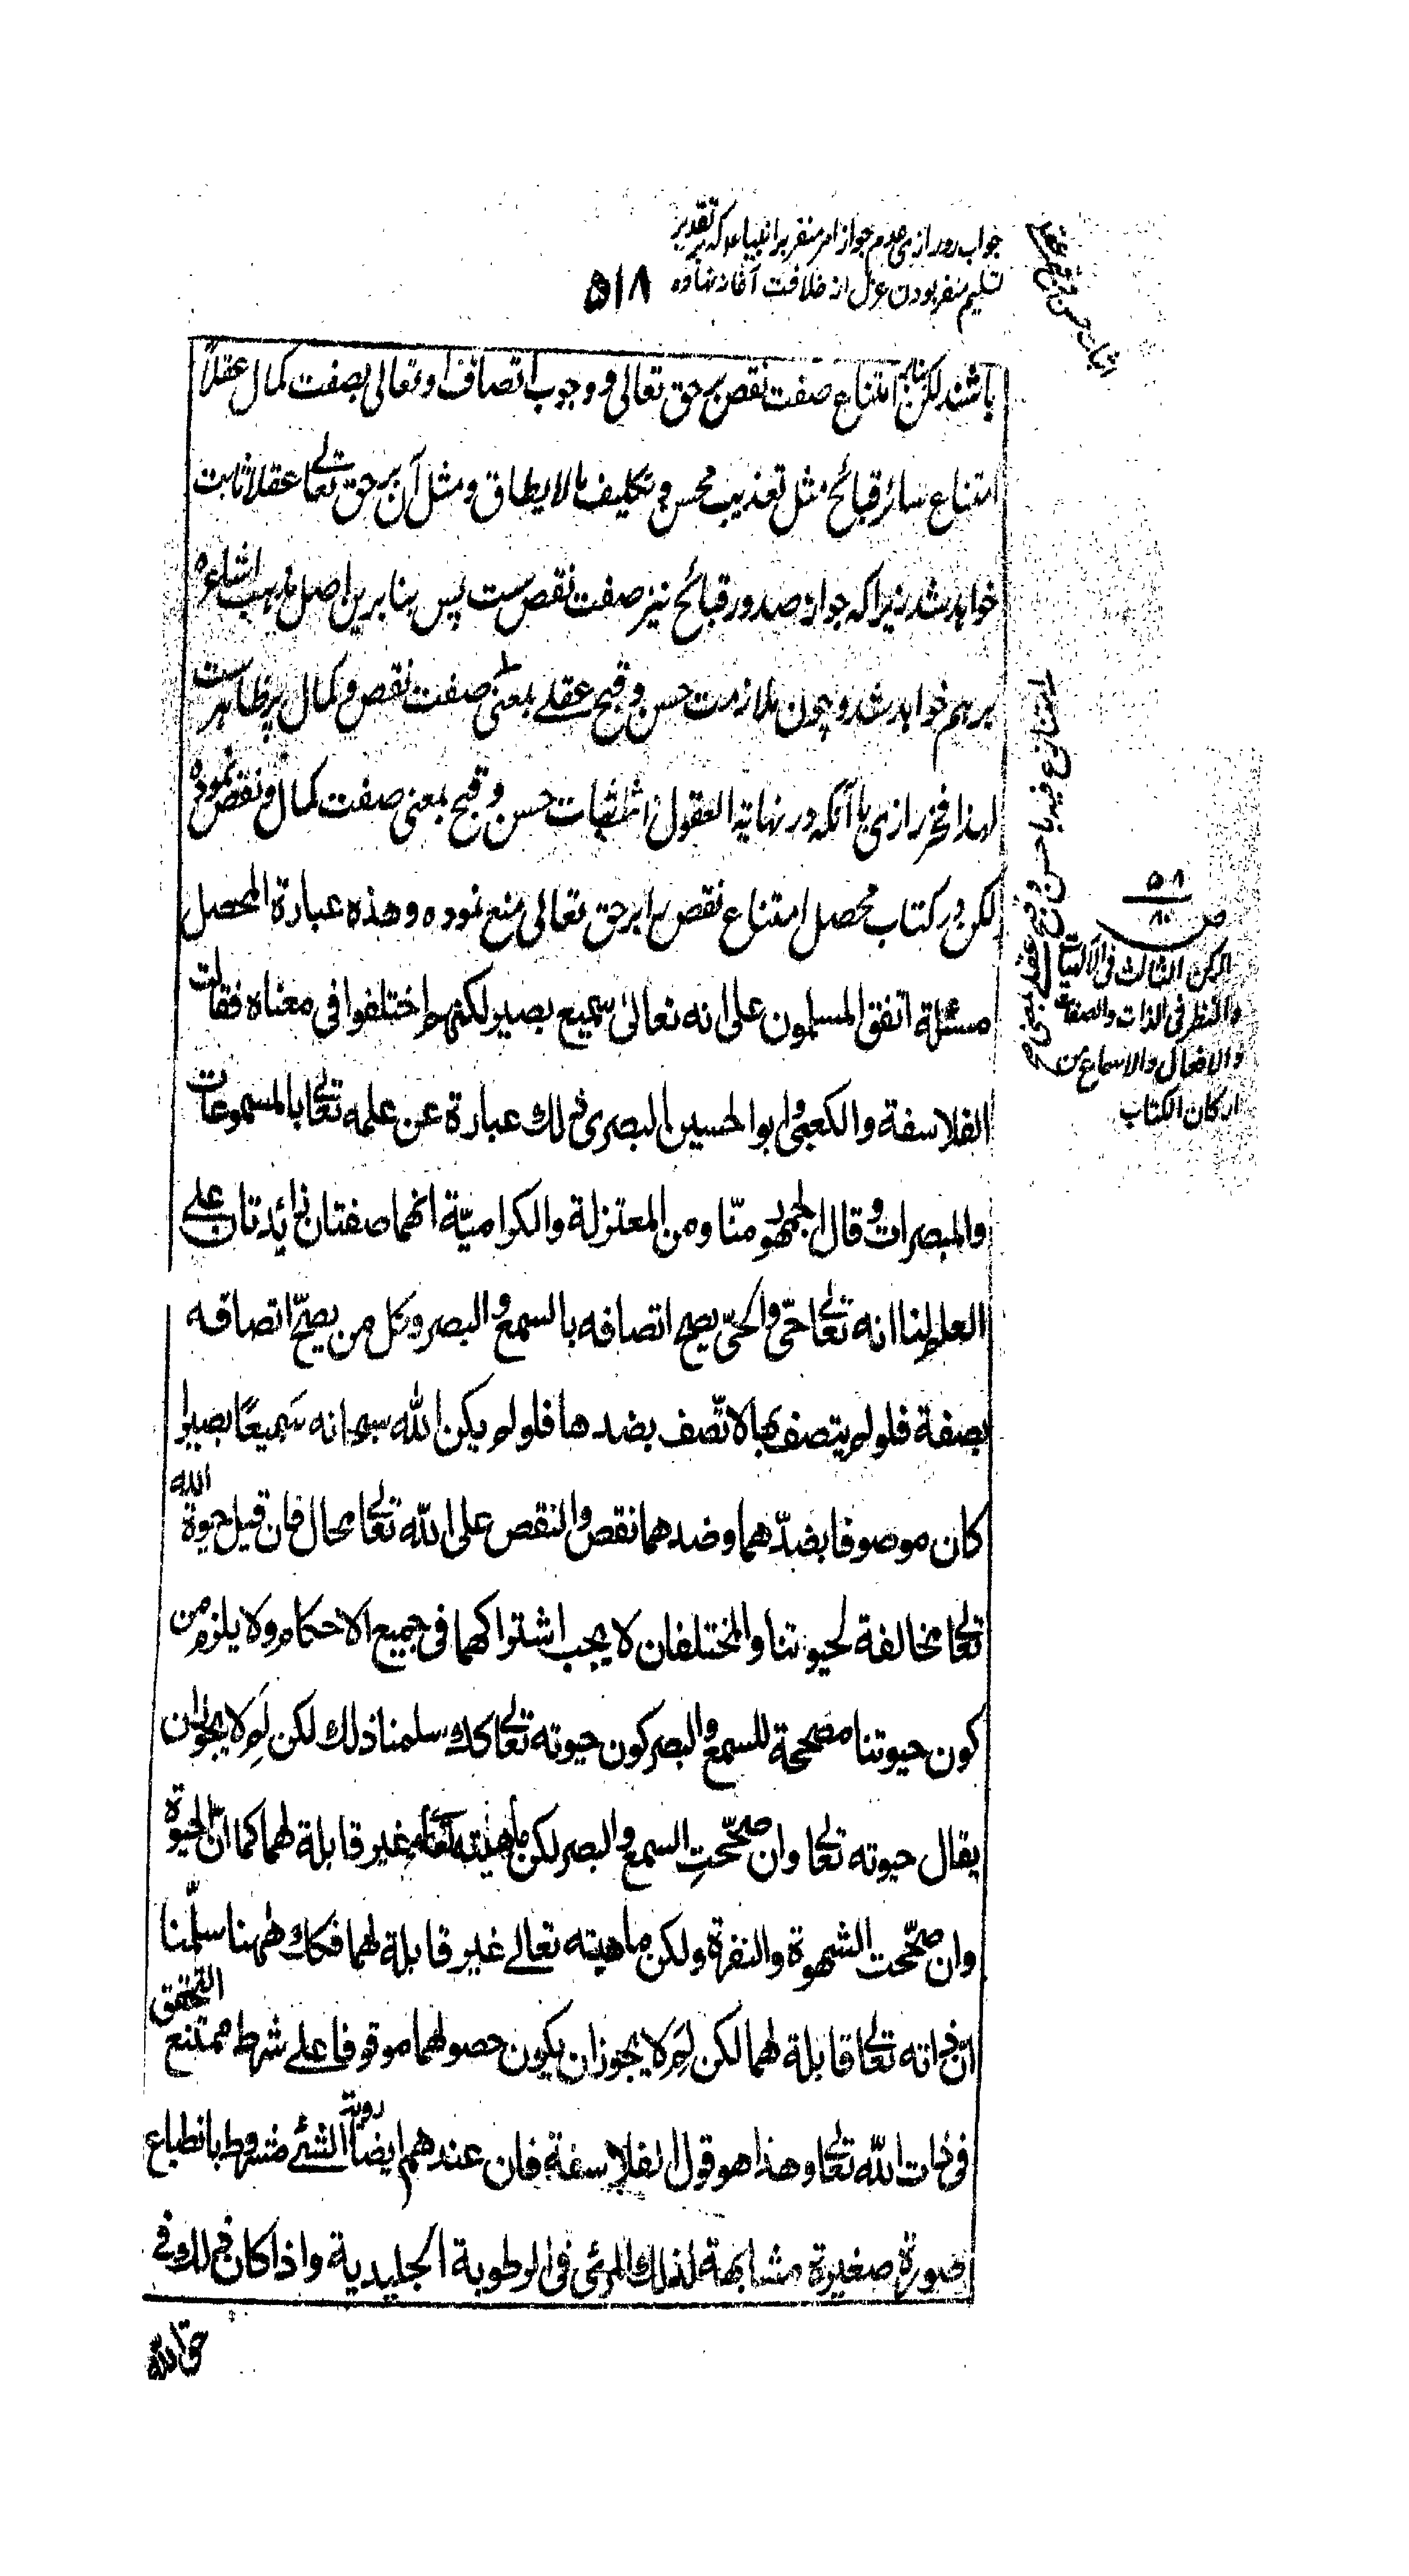 جواب رد رازی عدم جواز امر منفر بر انبیا را که بر تقدیر
تسلیم منفر بودن عزل از خلافت آغاز نهاده
۵۱۸
باشند لکن بنابر امتناع صفت نقص بر حق تعالی و وجوب اتصاف او تعالی بصفت کمال عقلاً
امتناع سائر قبائح مثل تعذیب محسن و تکلیف مالا یطاق و مثل آن بر حق تعالی عقلا ثابت
خواهد شد زیرا که جواز صدور قبائح نیز صفت نقص ست پس بنا برین اصل مذهب اشاعره
برهم خواهد شد و چون ملازمت حسن و قبح عقلے بمعنی صفت نقص و کمال پر ظاهرست
لهذا فخر رازی با آنکه در نهایة العقول اثبات حسن و قبح بمعنی صفت کمال و نقص نموده
لکن در کتاب محصل امتناع نقص را بر حق تعالی منع نموده و هذه عبارة المحصل
مسئلة اتفق المسلمون علی انه تعالی سمیع بصیر لکنهم اختلفوا فی معناه فقالت
الفلاسفة والکعبی و ابوا لحسین البصری ذلك عبارة عن علمه تعالی بالمسموعات
والمبصرات و قال الجمهور منّا ومن المعتزلة والکرامیّة انهما صفتان زائدتان علی
العلم لنا انه تعالی حیّ والحیّ یصح اتصافه بالسمع والبصر وکل من یصحّ اتصافه
بصفة فلو لم یتصف بها لاتّصف بضدها فلو لم یکن الله سبحانه سَمیعًا بصیرا
کان موصوفا بضدّهما وضدهما نقص والنقص علی الله تعالی محال فان قیل حیوة الله
تعالی مخالفة لحیوتنا والمختلفان لا یجب اشتراکهما فی جمیع الاحکام ولا یلزم من
کون حیوتنا مصححة للسمع والبصر کون حیوته تعالی کك سلمنا ذلك لکن لِمَ لا یجوز ان
یقال حیوته تعالی وان صحّحتِ السمع والبصر لکن ماهیته تعالی غیر قابلة لهما کما انّ الحیوة
وان صحّحت الشهوة والنفرة ولکن ماهیته تعالے غیر قابلة لهما فکك ههنا سلّمنا
انّ ذاته تعالی قابلة لهما لکن لِمَ لا یجوز ان یکون حصولهما موقوفا علی شرط ممتنع التحقق
فی ذات الله تعالی وهذا هو قول الفلاسفة فان عندهم ایضا رویة الشئ مشروط بانطباع
صورة صغیرة مشابهة لذلك المرئی فی الرطوبة الجلیدیة واذا کان ذلك فی
حق الله
۵۱۸
ص
الرکن الثالث فی الآلهیات
والنظر فی الذات والصفات
والافعال والاسماء من
ارکان الکتاب